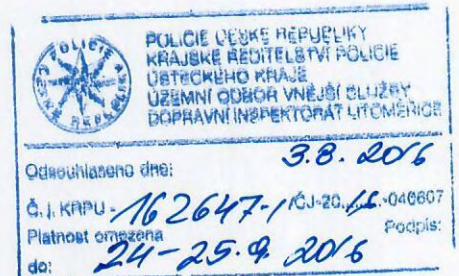 POLICIE ČESKÉ REPUBLIKY
KRAJSKÉ ŘEDITELSTVÍ POLICIE
ÚSTECKÉHO KRAJE
ÚZEMNÍ ODBOR VNĚJŠÍ SLUŽBY
DOPRAVNÍ INSPEKTORÁT LITOMĚŘICE
POLICIE
ČESKÉ REPUBLIKY
Odsouhlaseno dne: 3.8. 2016
Č. j. KRPU - 162647-1 /ČJ-20 16 -040607
Platnost omezena Podpis:
do: 24-25.9. 2016